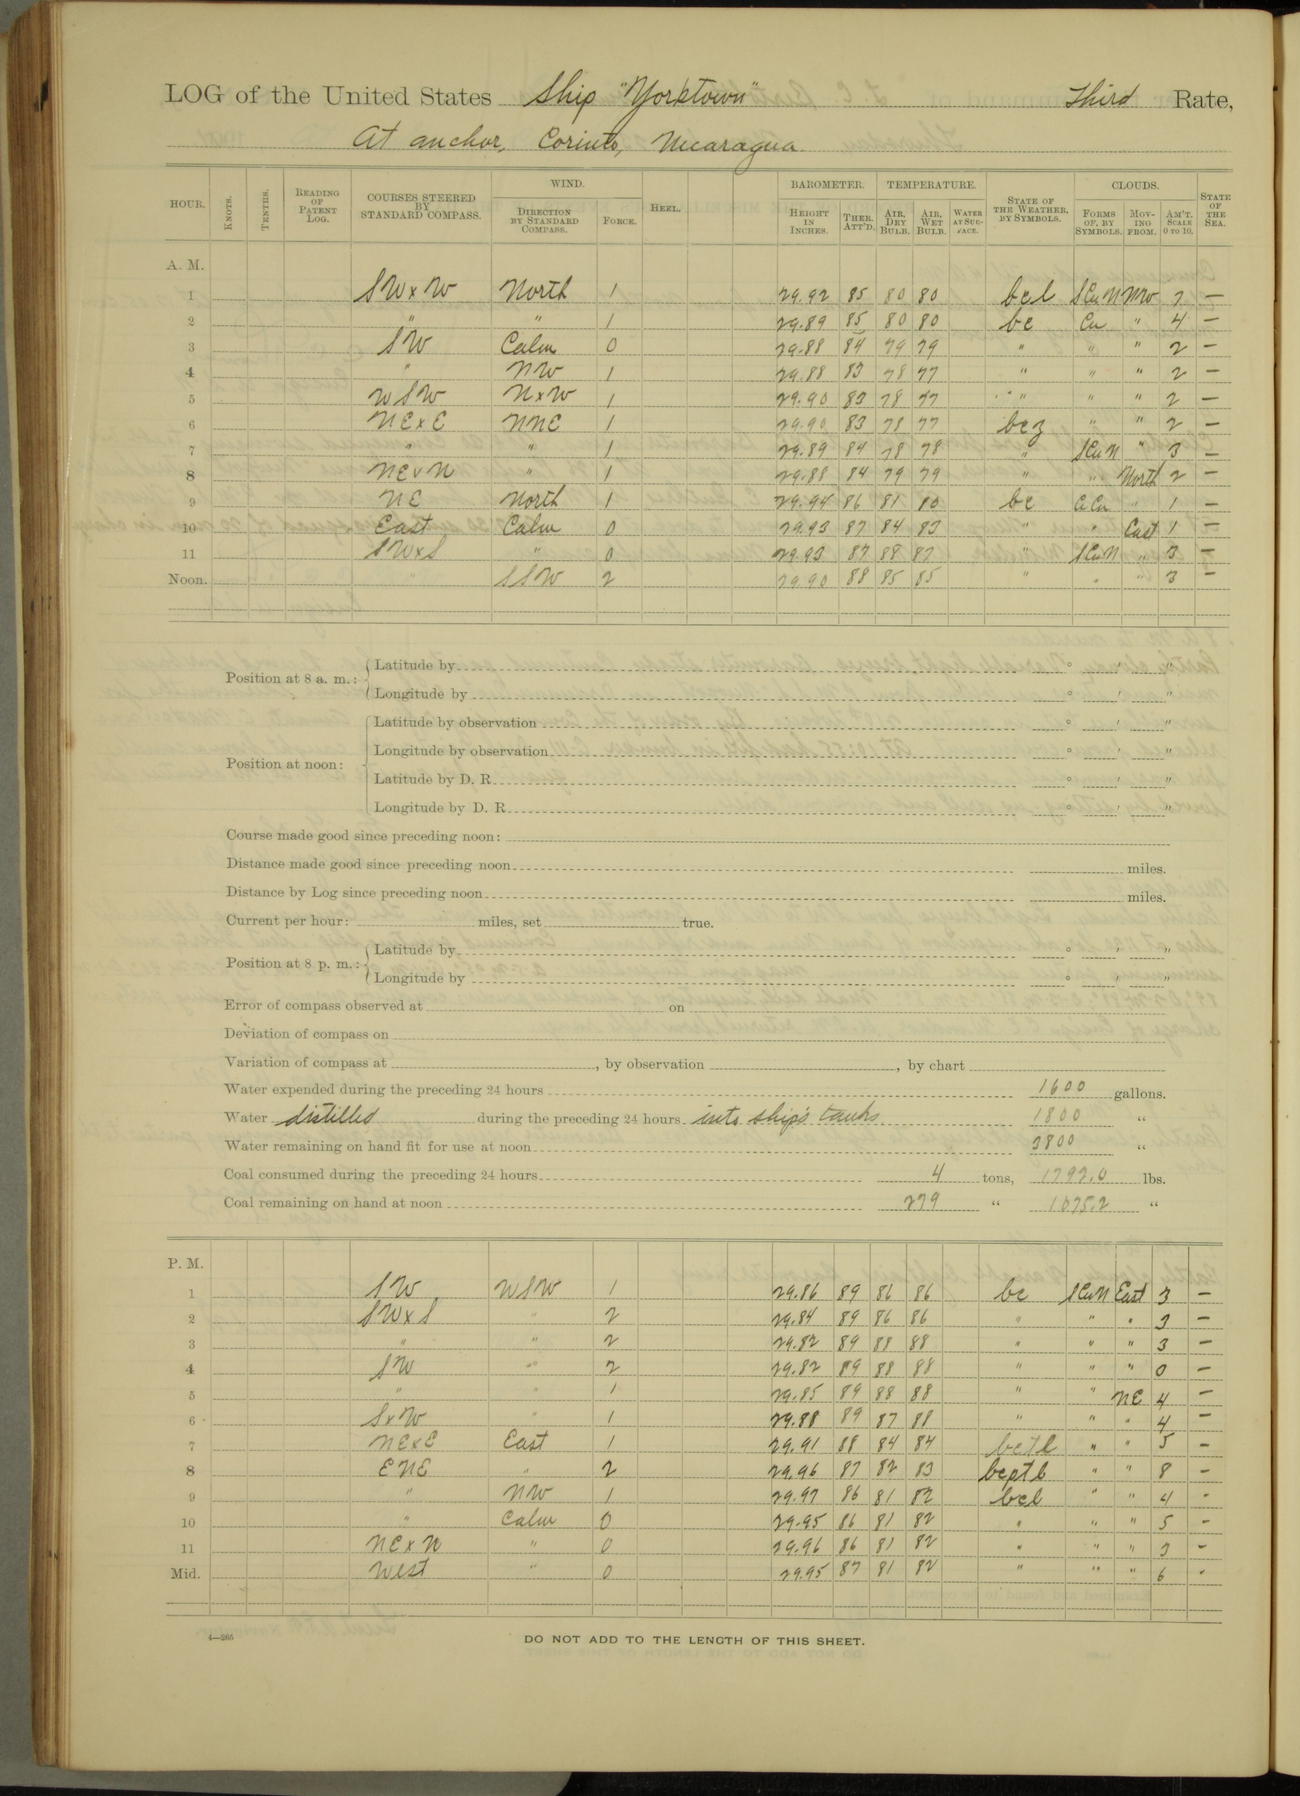 LOG of the United States Ship "Yorktown" Third Rate,
At anchor, Corinto, Nicaragua.
HOUR. KNOTS. TENTHS. READING OF PATENT LOG. COURSES STEERED BY STANDARD COMPASS. WIND. DIRECTION BY STANDARD COMPASS. FORCE. HEEL. BAROMETER. HEIGHT IN INCHES. THER. ATT'D. TEMPERATURE. AIR, DRY BULB. AIR, WET BULB. WATER AT SURFACE. STATE OF THE WEATHER, BY SYMBOLS. CLOUDS. FORMS OF, BY SYMBOLS. MOVING FROM. AM'T. SCALE 0 TO 10. STATE OF THE SEA.
A. M.
1 SWxW North 1 29.92 85 80 80 bcl SCuN NW 7 —
2 " " 1 29.89 85 80 80 bc Cu " 4 —
3 SW Calm 0 29.88 84 79 79 " " " 2 —
4 " NW 1 29.88 83 78 77 " " " 2 —
5 WSW NxW 1 29.90 83 78 77 " " " 2 —
6 NExE NNE 1 29.90 83 78 77 bcz " " 2 —
7 " " 1 29.89 84 78 78 " SCuN " 3 —
8 NExN " 1 29.88 84 79 79 " " North 2 —
9 NE North 1 29.94 86 81 80 bc CiCu " 1 —
10 East Calm 0 29.93 87 84 83 " " East 1 —
11 SWxS " 0 29.93 87 88 87 " SCuN " 3 —
Noon. " SSW 2 29.90 88 85 85 " " " 3 —
Position at 8 a. m.: Latitude by ° ′ ″
Longitude by ° ′ ″
Position at noon: Latitude by observation ° ′ ″
Longitude by observation ° ′ ″
Latitude by D. R. ° ′ ″
Longitude by D. R. ° ′ ″
Course made good since preceding noon:
Distance made good since preceding noon miles.
Distance by Log since preceding noon miles.
Current per hour: miles, set true.
Position at 8 p. m.: Latitude by ° ′ ″
Longitude by ° ′ ″
Error of compass observed at on
Deviation of compass on
Variation of compass at , by observation , by chart
Water expended during the preceding 24 hours 1600 gallons.
Water distilled during the preceding 24 hours into ship's tanks 1800 "
Water remaining on hand fit for use at noon 3800 "
Coal consumed during the preceding 24 hours 4 tons, 1792.0 lbs.
Coal remaining on hand at noon 279 " 1075.2 "
P. M.
1 SW WSW 1 29.86 89 86 86 bc SCuN East 3 —
2 SWxS " 2 29.84 89 86 86 " " " 3 —
3 " " 2 29.82 89 88 88 " " " 3 —
4 SW " 2 29.82 89 88 88 " " " 0 —
5 " " 1 29.85 89 88 88 " " NE 4 —
6 SxW " 1 29.88 89 87 88 " " " 4 —
7 NExE East 1 29.91 88 84 84 bctl " " 5 —
8 ENE " 2 29.96 87 82 83 bcptl " " 8 —
9 " NW 1 29.97 86 81 82 bcl " " 4 -
10 " Calm 0 29.95 86 81 82 " " " 5 -
11 NExN " 0 29.96 86 81 82 " " " 3 -
Mid. West " 0 29.95 87 81 82 " " " 6 -
4—265
DO NOT ADD TO THE LENGTH OF THIS SHEET.